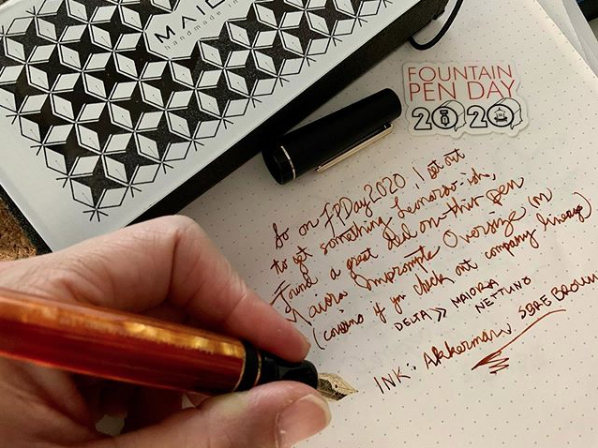 MAIO
handmade in
FOUNTAIN
PEN DAY
2020
So on FPDay 2020, I set out
to get something Leonardo-ish,
Found a great deal on this pen
Maiora Impronte Oversize (in
(cousins if you check out company lineage)
DELTA >> MAIORA
NETTUNO
INK: Akkerman SBRE Brown